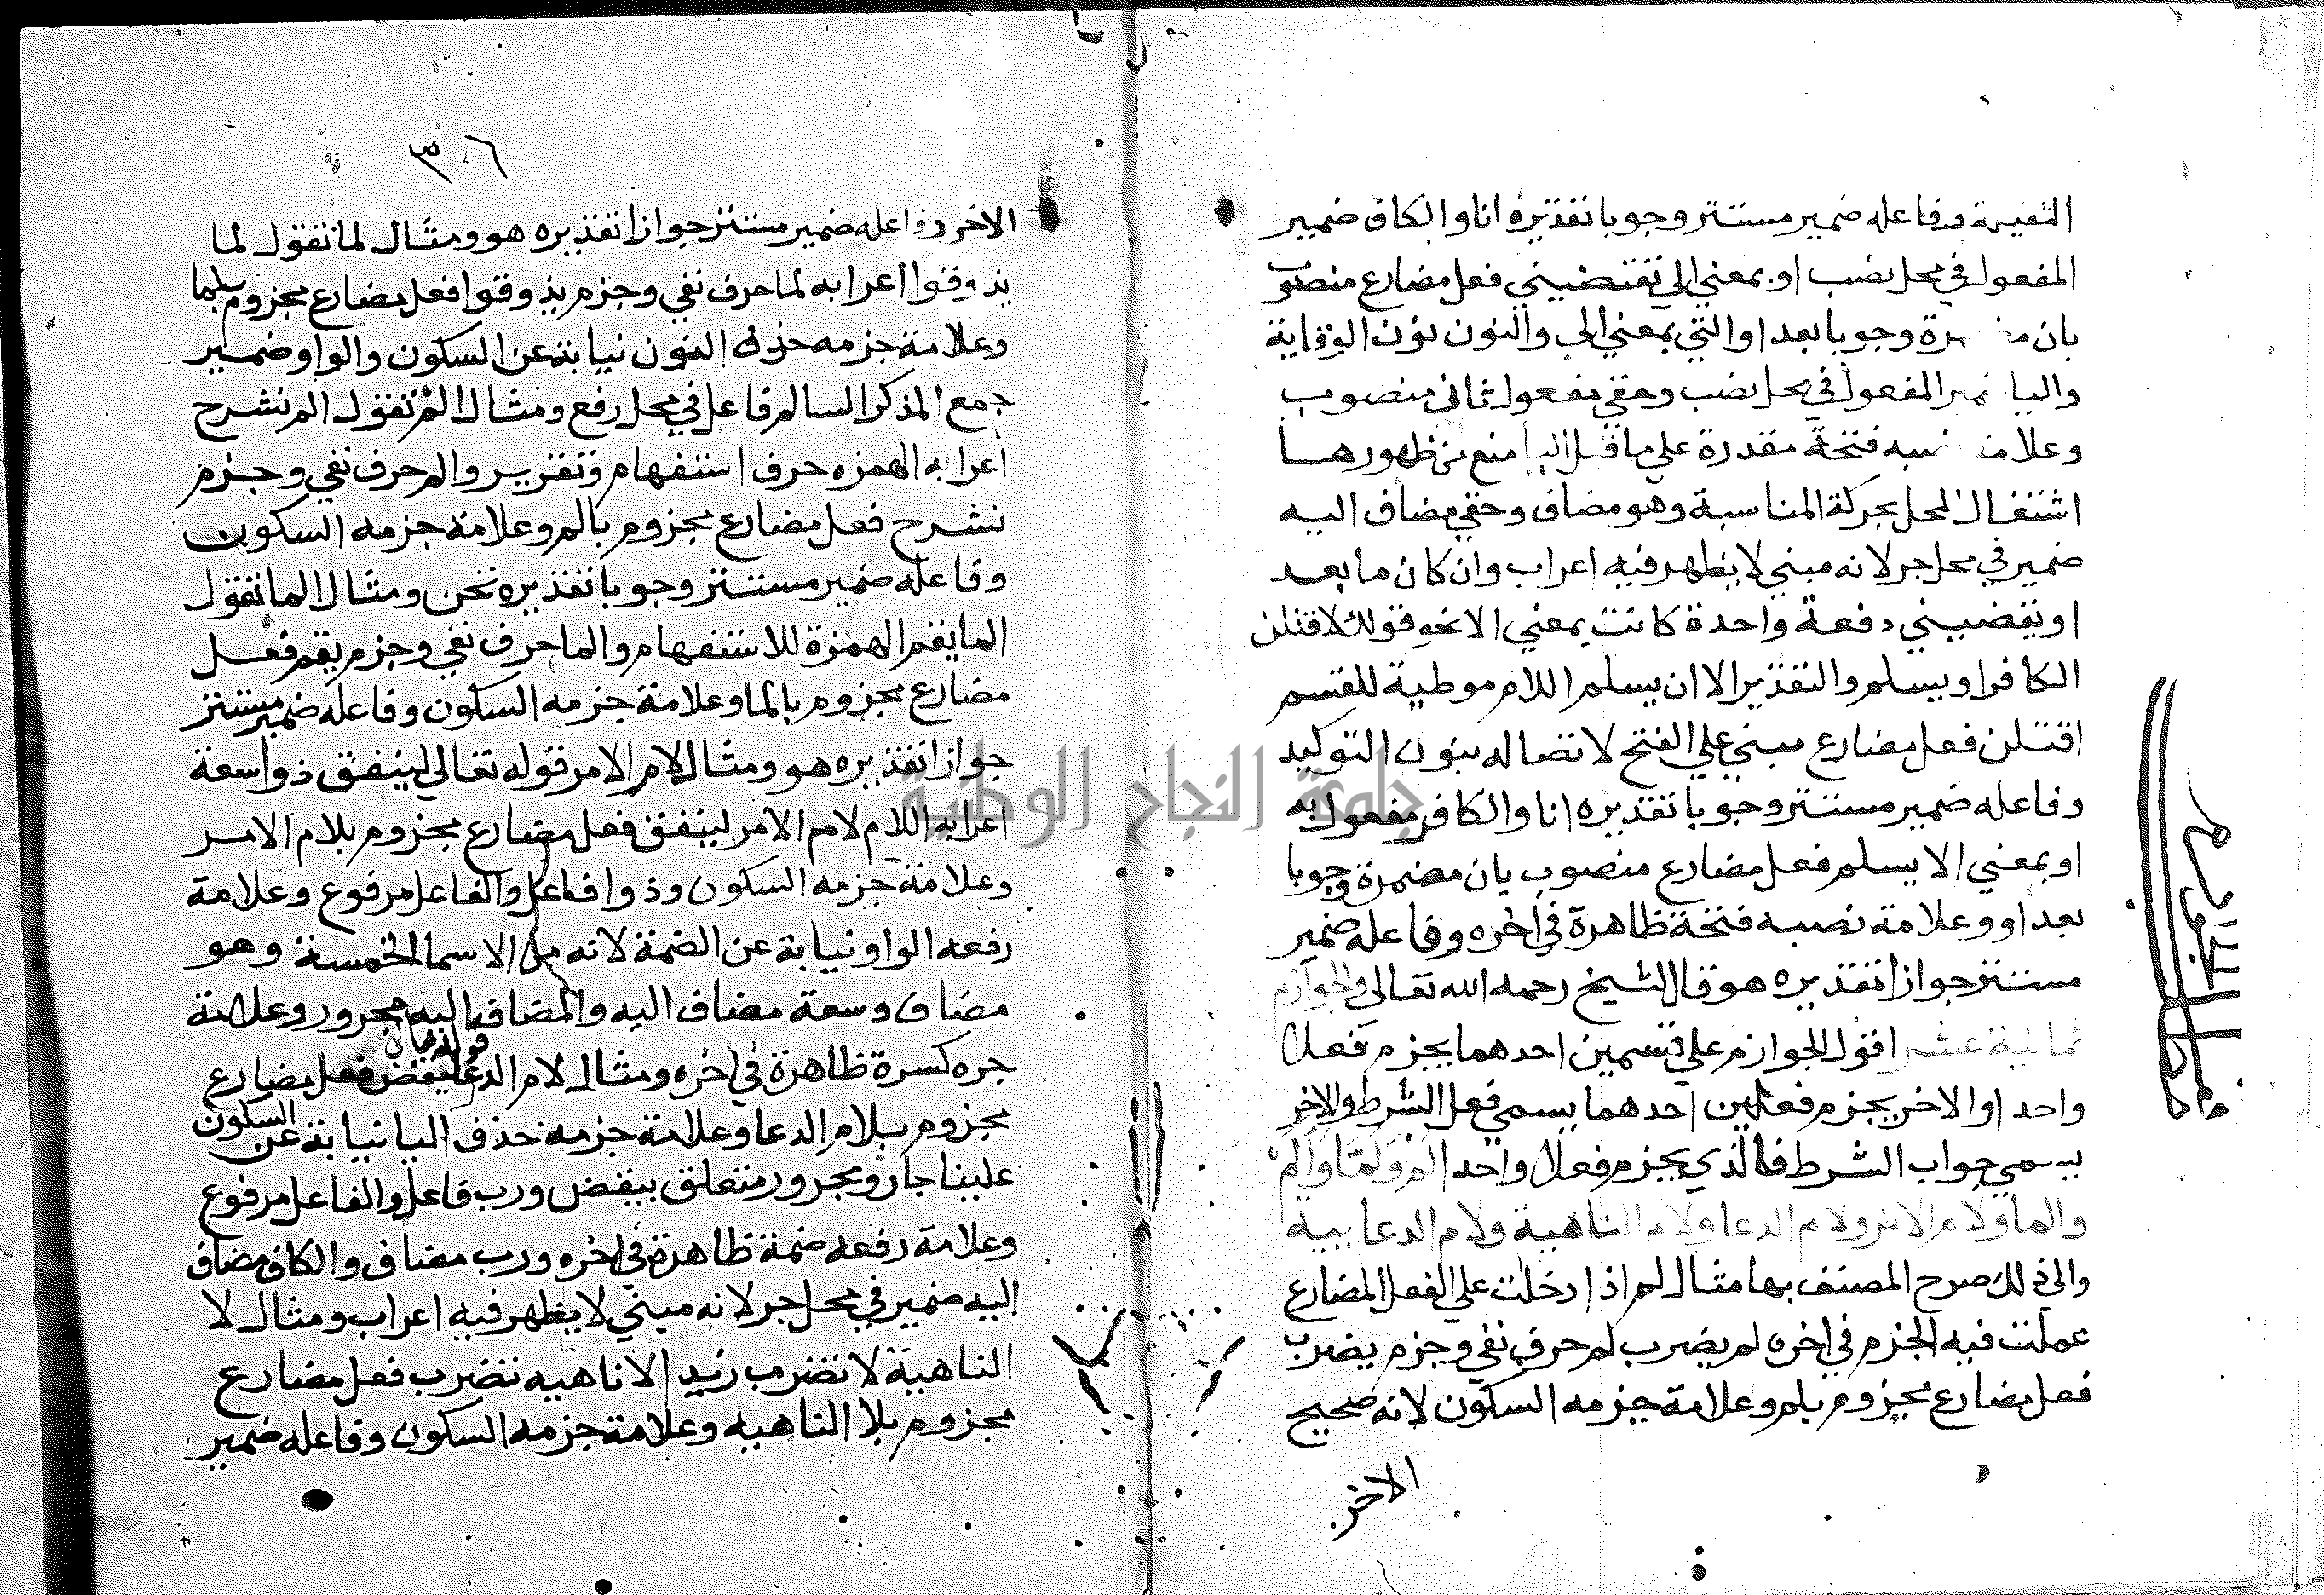 الثقيلة وفاعله ضمير مستتر وجوبا تقديره انا والكاف ضمير
المفعول في محل نصب او بمعني الي تقتضيني فعل مضارع منصوب
بان وجوبا بعد او التي بمعني الي والنون نون الوقاية
واليا المفعول في محل نصب وحقي مفعول ثاني منصوب
وعلامة نصبه فتحة مقدرة علي ما قبل اليا منع من ظهورها
اشتغال المحل بحركة المناسبة وهو مضاف وحقي مضاف اليه
ضمير في محل جر لانه مبني لا يظهر فيه اعراب وان كان ما بعد
او يقضيني دفعة واحدة كانت بمعني الا نحو قولك لاقتلن
الكافر او يسلم والتقدير الا ان يسلم اللام موطية للقسم
اقتلن فعل مضارع مبني علي الفتح لاتصاله بنون التوكيد
وفاعله ضمير مستتر وجوبا تقديره انا والكافر مفعول به
او بمعني الا يسلم فعل مضارع منصوب بان مضمرة وجوبا
بعد او وعلامة نصبه فتحة ظاهرة في اخره وفاعله ضمير
مستتر جوازا تقديره هو قال الشيخ رحمه الله تعالي والجوازم
ثمانية عشر اقول الجوازم علي قسمين احدهما يجزم فعلا
واحدا والاخر يجزم فعلين احدهما يسمي فعل الشرط والاخر
يسمي جواب الشرط فالذي يجزم فعلا واحد الم ولما والم
والما ولام الامر ولام الدعا ولام الناهية ولام الدعابية
والي ذلك صرح المصنف بها مثال لم اذا دخلت علي الفعل المضارع
عملت فيه الجزم في اخره لم يضرب لم حرف نفي وجزم يضرب
فعل مضارع مجزوم بلم وعلامة جزمه السكون لانه صحيح
الاخر
الجوازم
٣٦
الاخر وفاعله ضمير مستتر جوازا تقديره هو ومثال لما تقول لما
يذوقوا اعرابه لما حرف نفي وجزم يذوقوا فعل مضارع مجزوم بلما
وعلامة جزمه حذف النون نيابة عن السكون والواو ضمير
جمع المذكر السالم فاعل في محل رفع ومثال الم تقول الم نشرح
اعرابه الهمزه حرف استفهام وتقرير والم حرف نفي وجزم
نشرح فعل مضارع مجزوم بالم وعلامة جزمه السكون
وفاعله ضمير مستتر وجوبا تقديره نحن ومثال الما تقول
الما يقم الهمزة للاستفهام والما حرف نفي وجزم يقم فعل
مضارع مجزوم بالما وعلامة جزمه السكون وفاعله ضمير مستتر
جوازا تقديره هو ومثال لام الامر قوله تعالي لينفق ذو اسعة
اعرابه اللام لام الامر لينفق فعل مضارع مجزوم بلام الامر
وعلامة جزمه السكون وذوا فاعل والفاعل مرفوع وعلامة
رفعه الواو نيابة عن الضمة لانه من الاسما الخمسة وهو
مضاف وسعة مضاف اليه والمضاف اليه مجرور وعلامة
جره كسرة ظاهرة في اخره ومثال لام الدعا ليقض فعل مضارع
مجزوم بلام الدعا وعلامة جزمه حذف اليا نيابة عن السكون
علينا جار ومجرور متعلق بيقض ورب فاعل والفاعل مرفوع
وعلامة رفعه ضمة ظاهرة في اخره ورب مضاف والكاف مضاف
اليه ضمير في محل جر لانه مبني لا يظهر فيه اعراب ومثال لا
الناهية لا تضرب زيد الا ناهيه تضرب فعل مضارع
مجزوم بلا الناهيه وعلامة جزمه السكون وفاعله ضمير
جامعة النجاح الوطنية